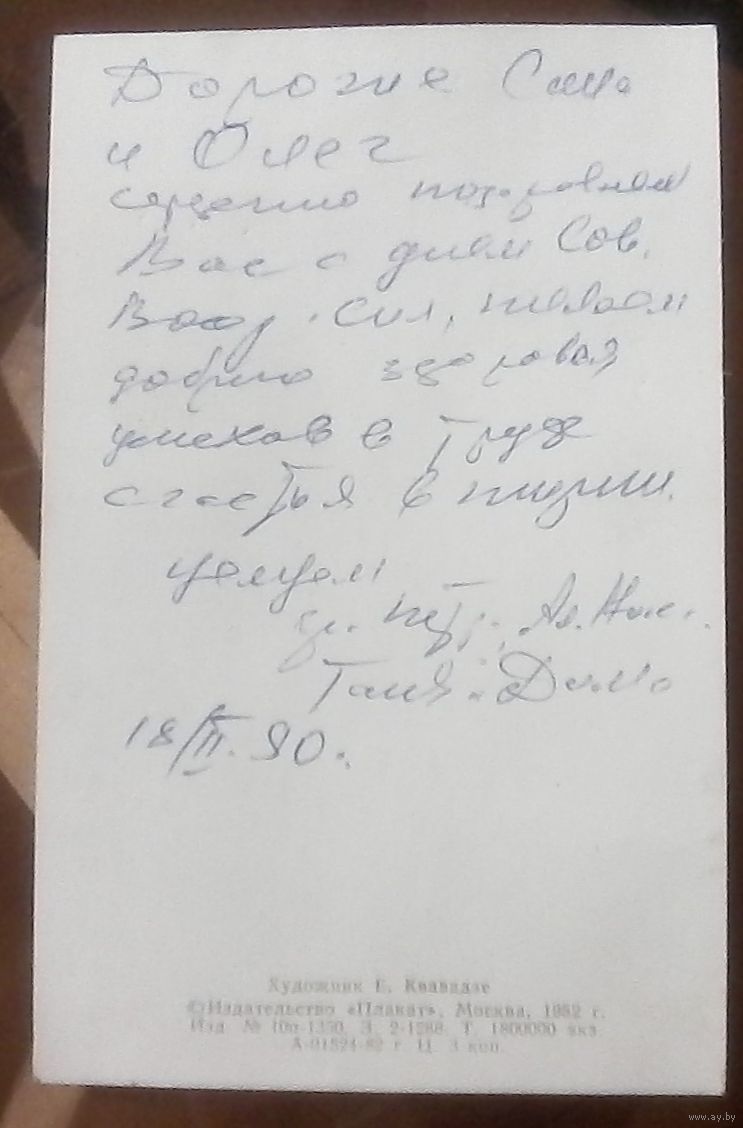 Дорогие Саша
и Олег
сердечно поздравляем
Вас с днем Сов.
Воор. Сил, желаем
доброго здоровья
успехов в труде
счастья в жизни.
целуем
Петр. Ал. Ник.
Таня. Дима
18/II. 90.
Художник Е. Квавадзе
© Издательство «Плакат», Москва, 1982 г.
Изд. № 10п-1350. З. 2-1288. Т. 1800000 экз.
А-01824-82 г. Ц. 3 коп.
www.ay.by